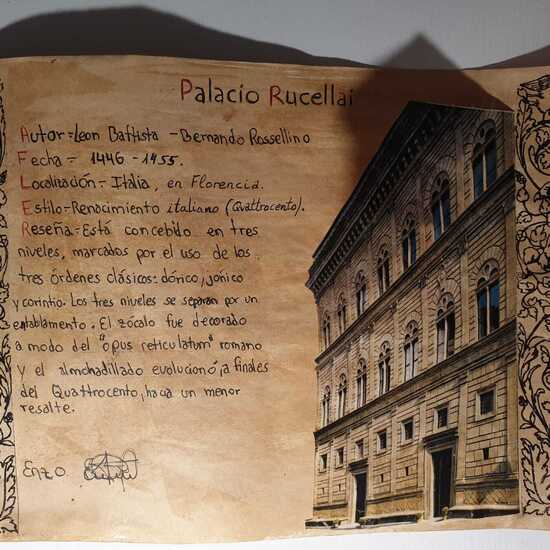 Palacio Rucellai
Autor=Leon Battista - Bernando Rossellino
Fecha= 1446 - 1455.
Localización= Italia, en Florencia.
Estilo=Renacimiento italiano (Quattrocento).
Reseña=Está concebido en tres
niveles, marcados por el uso de los
tres órdenes clásicos: dórico, jónico
y corintio. Los tres niveles se separan por un
entablamento. El zócalo fue decorado
a modo del "opus reticulatum" romano
y el almohadillado evolucionó, a finales
del Quattrocento, hacia un menor
resalte.
Enzo